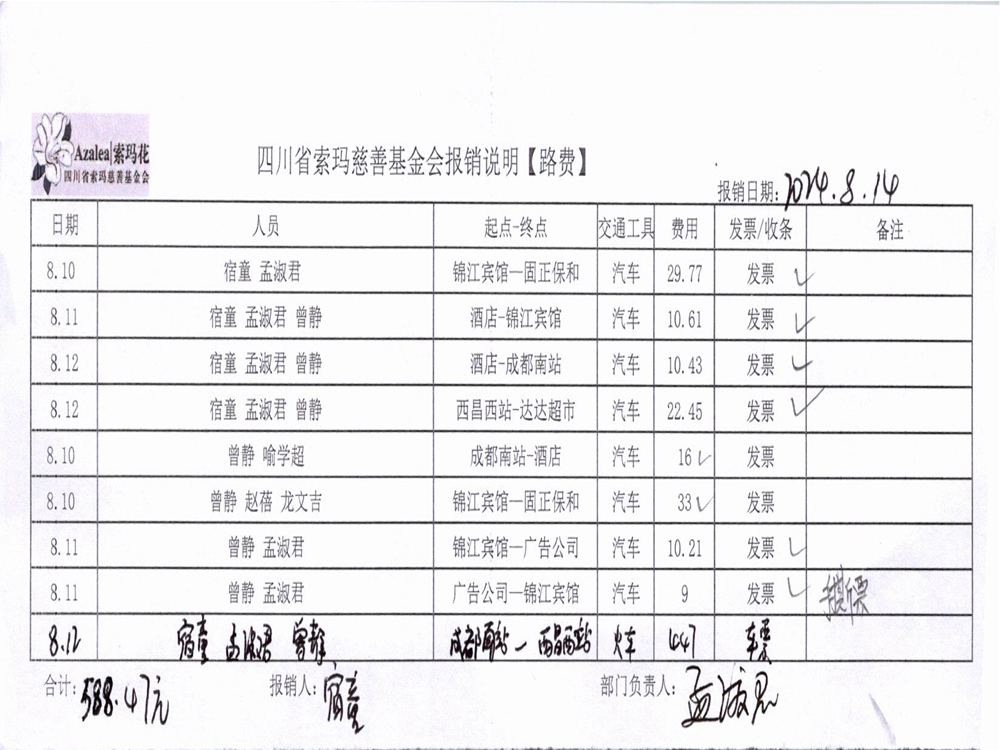 Azalea|索玛花
四川省索玛慈善基金会
四川省索玛慈善基金会报销说明【路费】
报销日期：2024.8.14
日期 人员 起点-终点 交通工具 费用 发票/收条 备注
8.10 宿童 孟淑君 锦江宾馆—固正保和 汽车 29.77 发票 ✓
8.11 宿童 孟淑君 曾静 酒店-锦江宾馆 汽车 10.61 发票 ✓
8.12 宿童 孟淑君 曾静 酒店-成都南站 汽车 10.43 发票 ✓
8.12 宿童 孟淑君 曾静 西昌西站-达达超市 汽车 22.45 发票 ✓
8.10 曾静 喻学超 成都南站-酒店 汽车 16 ✓ 发票
8.10 曾静 赵蓓 龙文吉 锦江宾馆—固正保和 汽车 33 ✓ 发票
8.11 曾静 孟淑君 锦江宾馆—广告公司 汽车 10.21 发票 ✓
8.11 曾静 孟淑君 广告公司—锦江宾馆 汽车 9 发票 ✓
8.12 宿童 孟淑君 曾静 成都南站—西昌西站 火车 447 车票
合计：588.47元 报销人：宿童 部门负责人：孟淑君